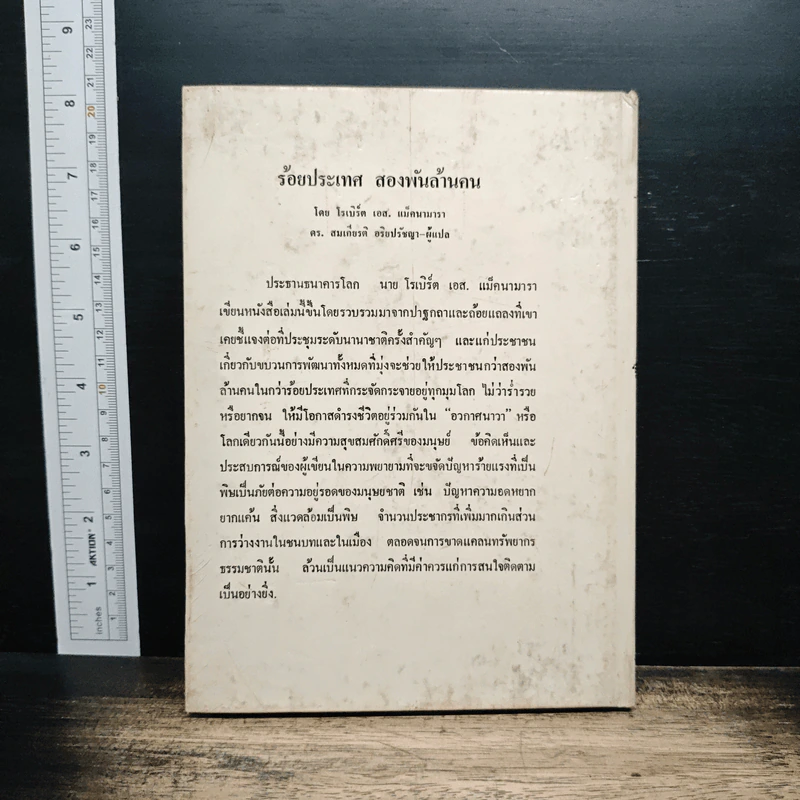 ร้อยประเทศ สองพันล้านคน
โดย โรเบิร์ต เอส. แม็คนามารา
ดร. สมเกียรติ อริยปรัชญา-ผู้แปล
ประธานธนาคารโลก นาย โรเบิร์ต เอส. แม็คนามารา
เขียนหนังสือเล่มนี้ขึ้นโดยรวบรวมมาจากปาฐกถาและถ้อยแถลงที่เขา
เคยชี้แจงต่อที่ประชุมระดับนานาชาติครั้งสำคัญๆ และแก่ประชาชน
เกี่ยวกับขบวนการพัฒนาทั้งหมดที่มุ่งจะช่วยให้ประชาชนกว่าสองพัน
ล้านคนในกว่าร้อยประเทศที่กระจัดกระจายอยู่ทุกมุมโลก ไม่ว่าร่ำรวย
หรือยากจน ให้มีโอกาสดำรงชีวิตอยู่ร่วมกันใน "อวกาศนาวา" หรือ
โลกเดียวกันนี้อย่างมีความสุขสมศักดิ์ศรีของมนุษย์ ข้อคิดเห็นและ
ประสบการณ์ของผู้เขียนในความพยายามที่จะขจัดปัญหาร้ายแรงที่เป็น
พิษเป็นภัยต่อความอยู่รอดของมนุษยชาติ เช่น ปัญหาความอดหยาก
ยากแค้น สิ่งแวดล้อมเป็นพิษ จำนวนประชากรที่เพิ่มมากเกินส่วน
การว่างงานในชนบทและในเมือง ตลอดจนการขาดแคลนทรัพยากร
ธรรมชาตินั้น ล้วนเป็นแนวความคิดที่มีค่าควรแก่การสนใจติดตาม
เป็นอย่างยิ่ง.
inches
1 2 3 4 5 6 7 8 9
AKTION
1 2 3 4 5 6 7 8 9 10 11 12 13 14 15 16 17 18 19 20 21 22 23